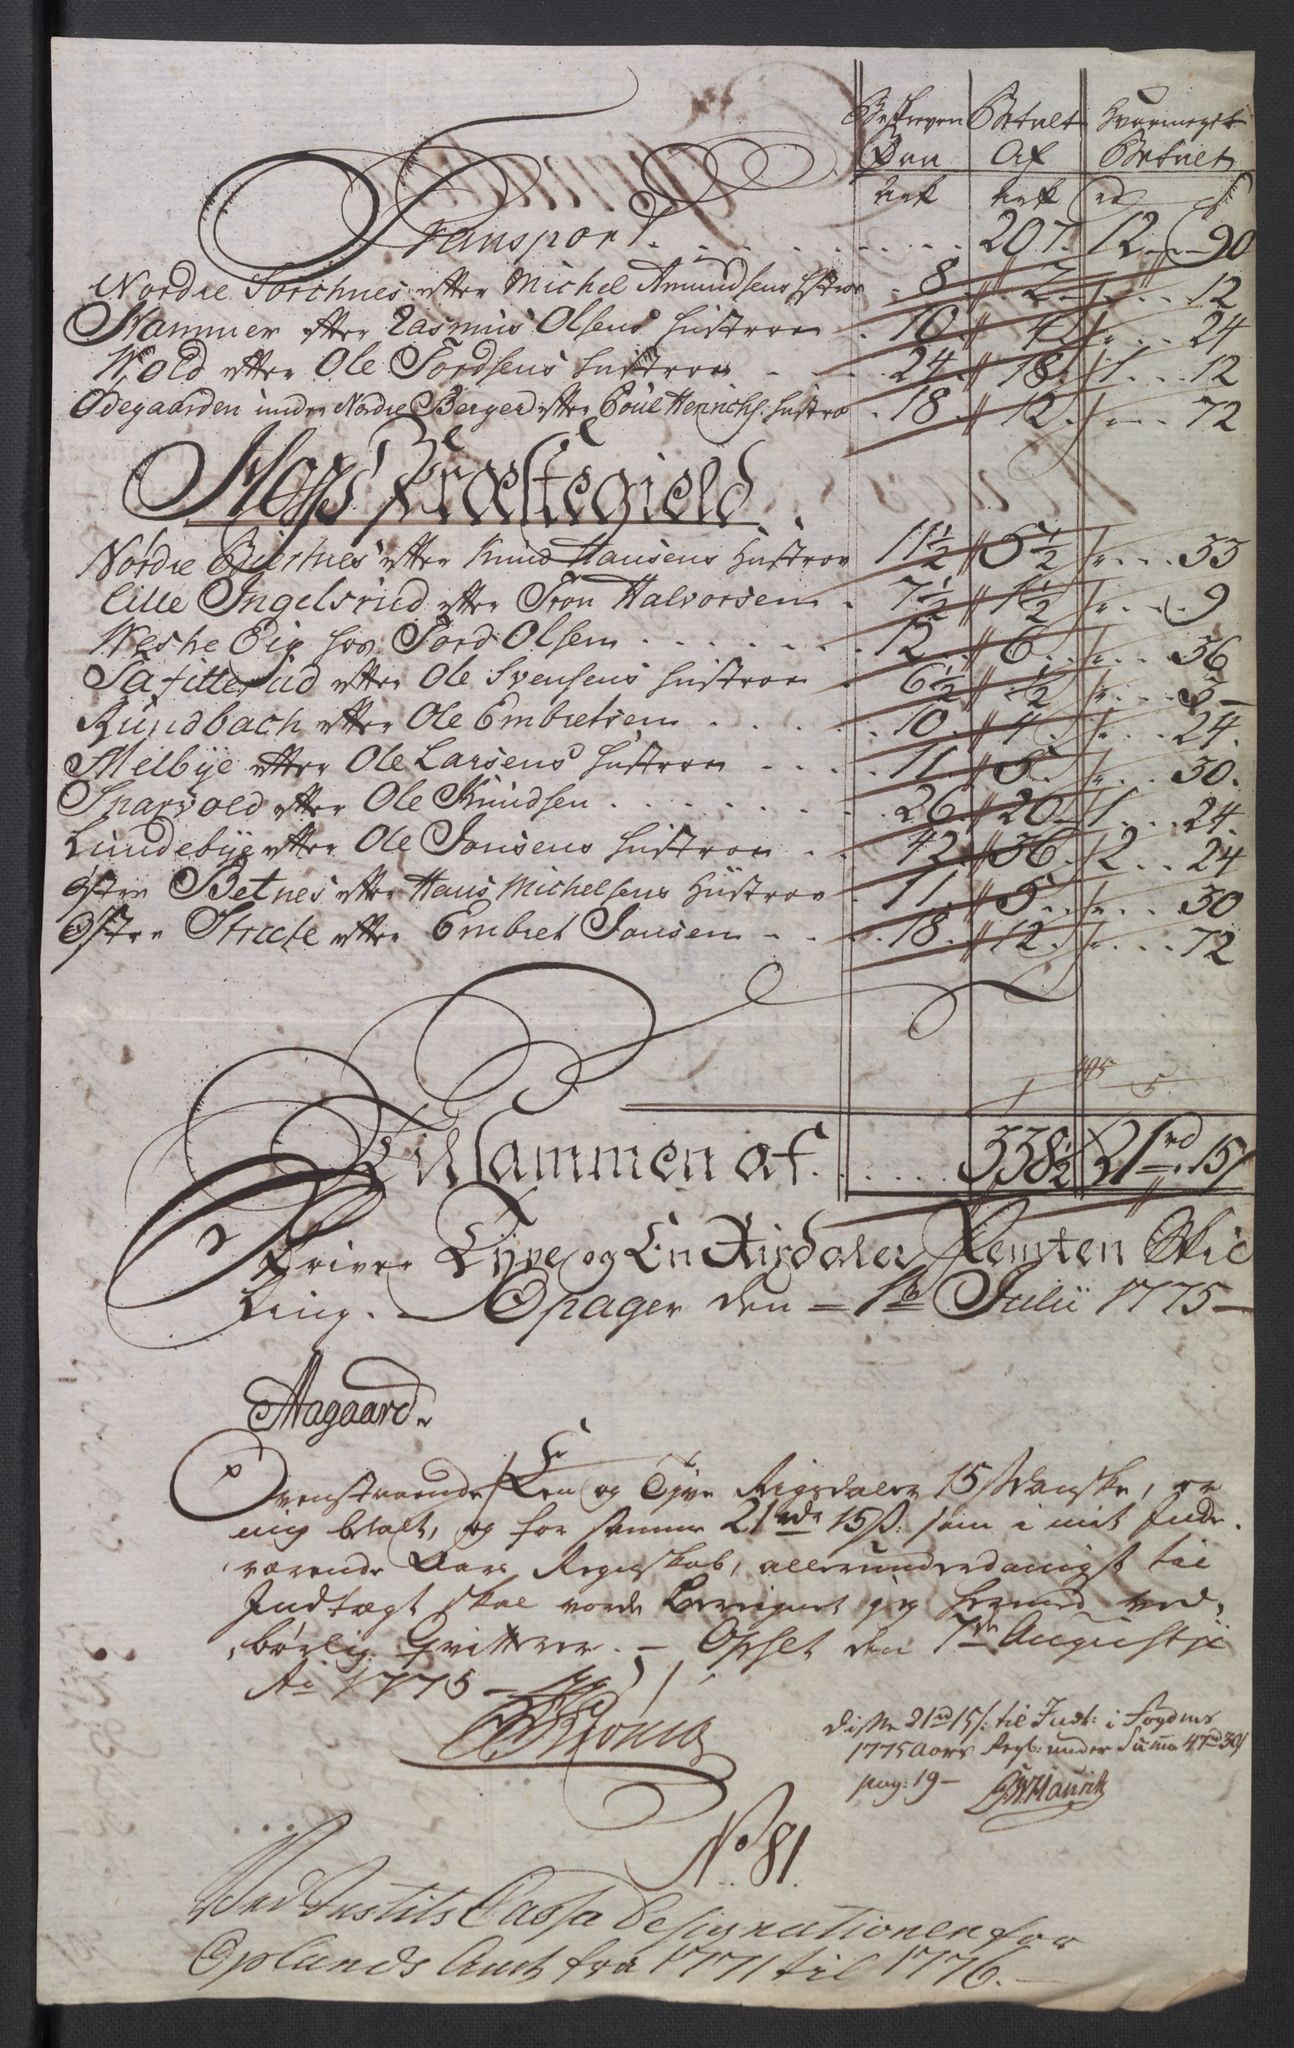 Beskreven Betalt Hvormeget
Paa Af Betalt
Ark Ark rd ß
Transport . . . . . . . . . . . 207. 12 . . . 90
Nordre Torchnes efter Michel Amundsens Hustroe . 8 2 " . . . 12
Hammer efter Rasmus Olsens Hustroe . 10 4 " . . . 24
Wold efter Ole Tordsens Hustroe . . . 24 18 1 . . . 12
Ødegaarden under Nordre Berger efter Poul Henrichs. Hustroe . 18 12 " . . . 72
Præstegield
Nordre efter Knud Hansens Hustroe 11½ 5½ " . . . 33
Lille Ingelsrud efter Tron Halvorsen . 7½ 1½ " . . . 9
Westre Eig hos Tord Olsen . . . . . . 12 6 " . . . 36
efter Ole Svensens Hustroe . 6½ ½ " . . . 3
Rundbach efter Ole Embretsen . . . . 10 4 " . . . 24
Melbye efter Ole Larsens Hustroe . . . 11 5 " . . . 30
efter Ole Knudsen . . . . . . 26 20 1 . . . 24
Lundebye efter Ole Jonsens Hustroe . . . 42 36 2 . . . 24
Østre Betnes efter Hans Michelsens Hustroe . 11 5 " . . . 30
Østre efter Embret Jonsen . . . 18 12 " . . . 72
Tilsammen af . . . . . 338½ 21rd 15ß
Skriver Tyve og En Rixdaler Femten Skil
ling. Opager den 1te Julii 1775
Aagaard
Ovenstaaende Een og Tyve Rigsdaler 15ß Danske, er
mig betalt, og for samme 21rdr 15ß: som i mit Inde
værende Aars Regnskab, allerunderdanigst til
Indtægt skal vorde Beregnet jeg hermed ved
børlig Qvitterer. Opset den 7de Augustji
Ao 1775
disse 21rd 15ß til Indt: i Fogdens
1775 Aars Regb: under Suma 47rd 30ß
pag: 19
No 81.
Ved Justits Cassa Designationen for
Oplands Amt fra 1771 til 1776.